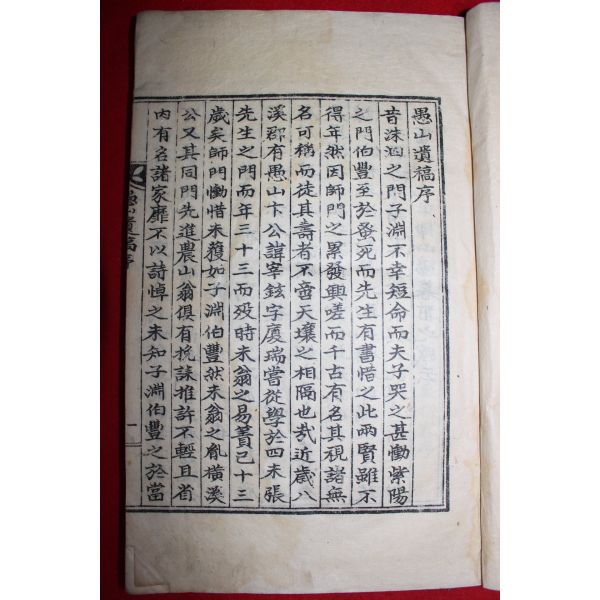 愚山遺稿序
昔洙泗之門子淵不幸短命而夫子哭之甚慟紫陽
之門伯豐至於蚤死而先生有書惜之此兩賢雖不
得年然因師門之累發興嗟而千古有名其視諸無
名可稱而徒其壽者不啻天壤之相隔也哉近歲八
溪郡有愚山卞公諱宰鉉字廈瑞嘗從學於四未張
先生之門而年三十三而歿時未翁之易簀已十三
歲矣師門慟惜未獲如子淵伯豐然未翁之胤橫溪
公又其同門先進農山翁俱有挽誄推許不輕且省
內有名諸家靡不以詩悼之未知子淵伯豐之於當
愚山遺稿序
一